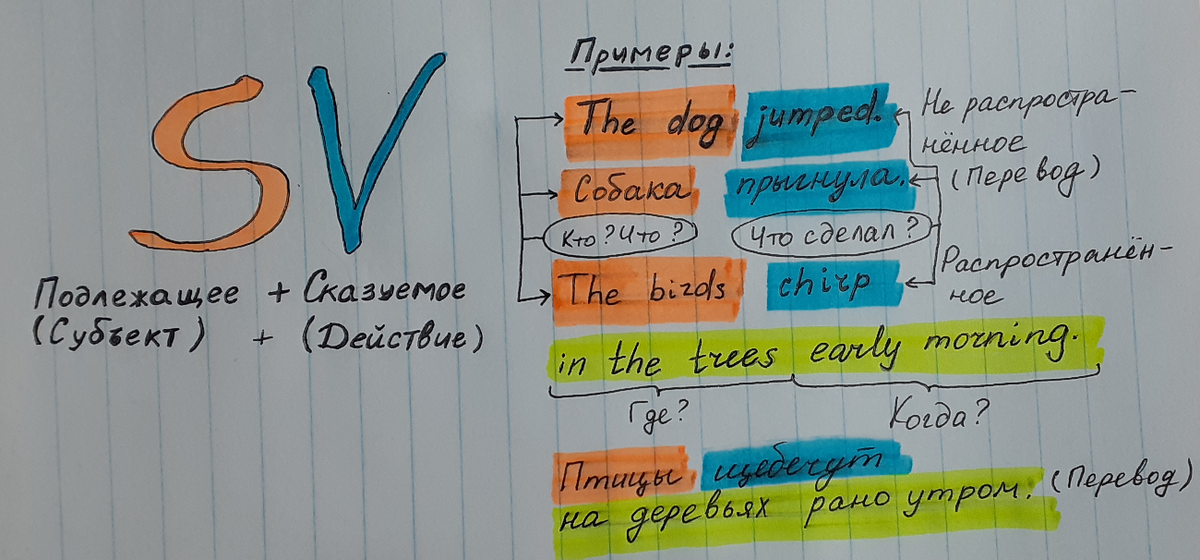 SV
Подлежащее + Сказуемое
(Субъект) + (Действие)
Примеры:
The dog jumped.
Не распростра-
нённое
Собака прыгнула.
(Перевод)
Кто? Что? Что сделал?
The birds chirp
Распространён-
ное
in the trees early morning.
Где? Когда?
Птицы щебечут
на деревьях рано утром. (Перевод)